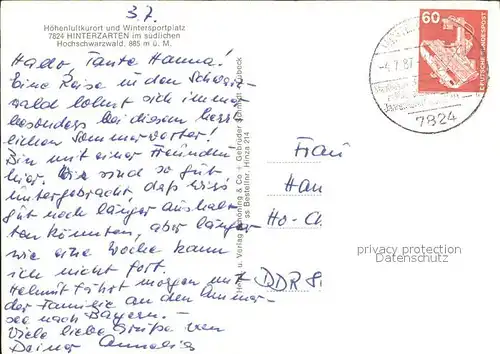 3.7.
Höhenluftkurort und Wintersportplatz
7824 HINTERZARTEN im südlichen
Hochschwarzwald, 885 m ü. M.
Hallo, Tante Hanna!
Eine Reise in den Schwarz-
wald lohnt sich immer
besonders bei diesem herr-
lichen Sommerwetter!
Bin mit einer Freundin
hier. Wir sind so gut
untergebracht, daß wir's
gut noch länger aushal-
ten könnten, aber länger
wie eine Woche kann
ich nicht fort.
Helmut fährt morgen mit
der Familie an den Ammer-
see nach Bayern. –
Viele liebe Grüße von
Deiner Annelies
und Verlag Schöning & Co + Gebrüder Schmidt, Lübeck
Bestellnr. Hinza 214
60
DEUTSCHE BUNDESPOST
-4.7.87
7824
Frau
Han
Ho-Ch
DDR 8
privacy protection